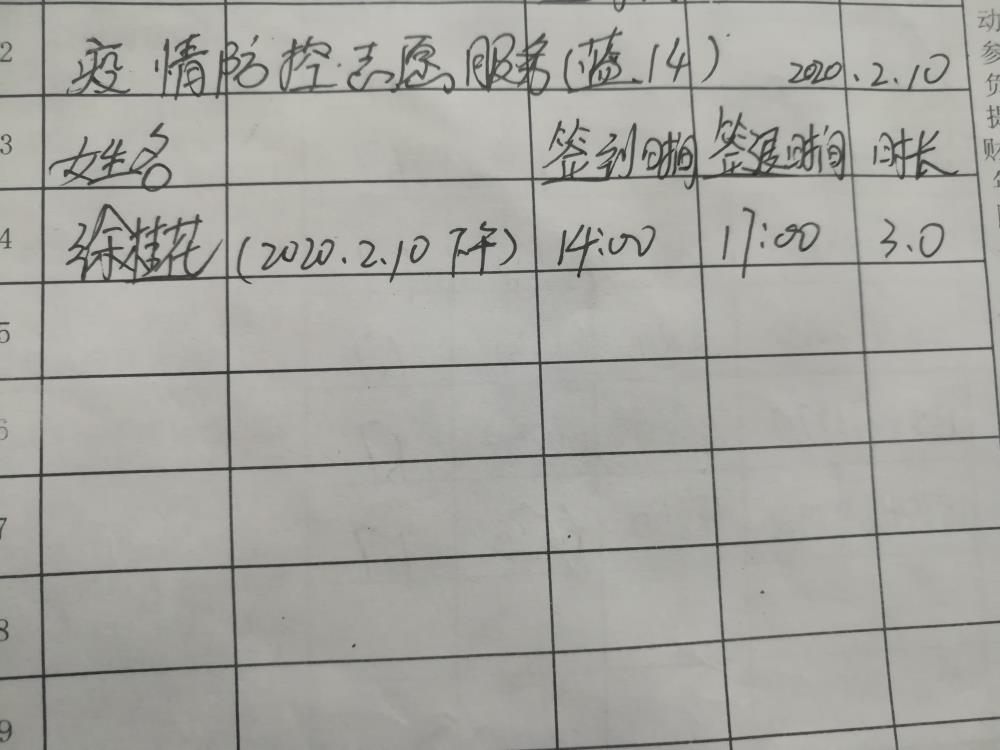 2 疫情防控志愿服务(蓝.14) 2020.2.10
3 姓名 签到时间 签退时间 时长
4 徐桂花 (2020.2.10 下午) 14:00 17:00 3.0
5
6
7
8
9
动
参
负
提
财